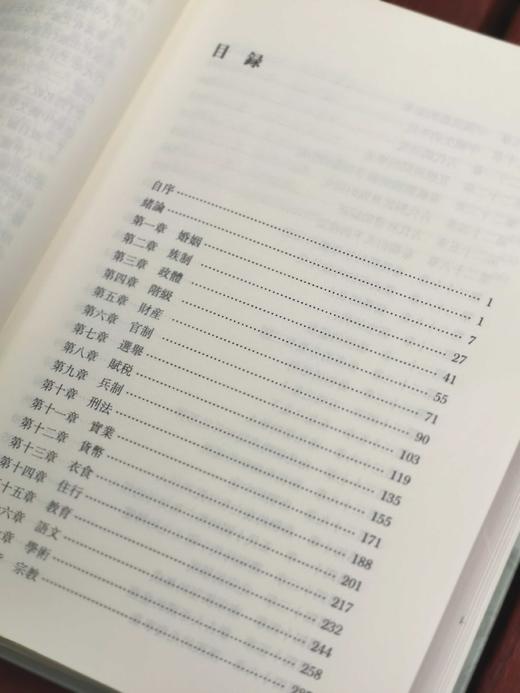 目 録
自序……1
緒論……1
第一章 婚姻……7
第二章 族制……27
第三章 政體……41
第四章 階級……55
第五章 財産……71
第六章 官制……90
第七章 選舉……103
第八章 賦税……119
第九章 兵制……135
第十章 刑法……155
第十一章 實業……171
第十二章 貨幣……188
第十三章 衣食……201
第十四章 住行……217
十五章 教育……232
六章 語文……244
章 學術……258
宗教……
1